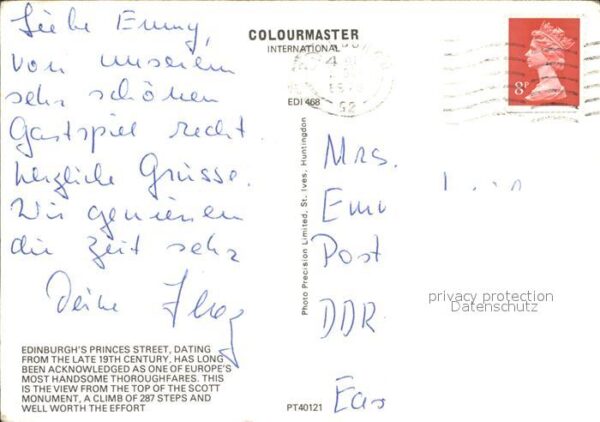 Liebe Emmy,
von unserem
sehr schönen
Gastspiel recht
herzliche Grüsse.
Wir geniesen
die Zeit sehr
Deine
COLOURMASTER
INTERNATIONAL
EDI 468
8P
Photo Precision Limited, St. Ives, Huntingdon
Mrs.
Post
DDR
privacy protection
Datenschutz
EDINBURGH'S PRINCES STREET, DATING
FROM THE LATE 19TH CENTURY, HAS LONG
BEEN ACKNOWLEDGED AS ONE OF EUROPE'S
MOST HANDSOME THOROUGHFARES. THIS
IS THE VIEW FROM THE TOP OF THE SCOTT
MONUMENT, A CLIMB OF 287 STEPS AND
WELL WORTH THE EFFORT
PT40121